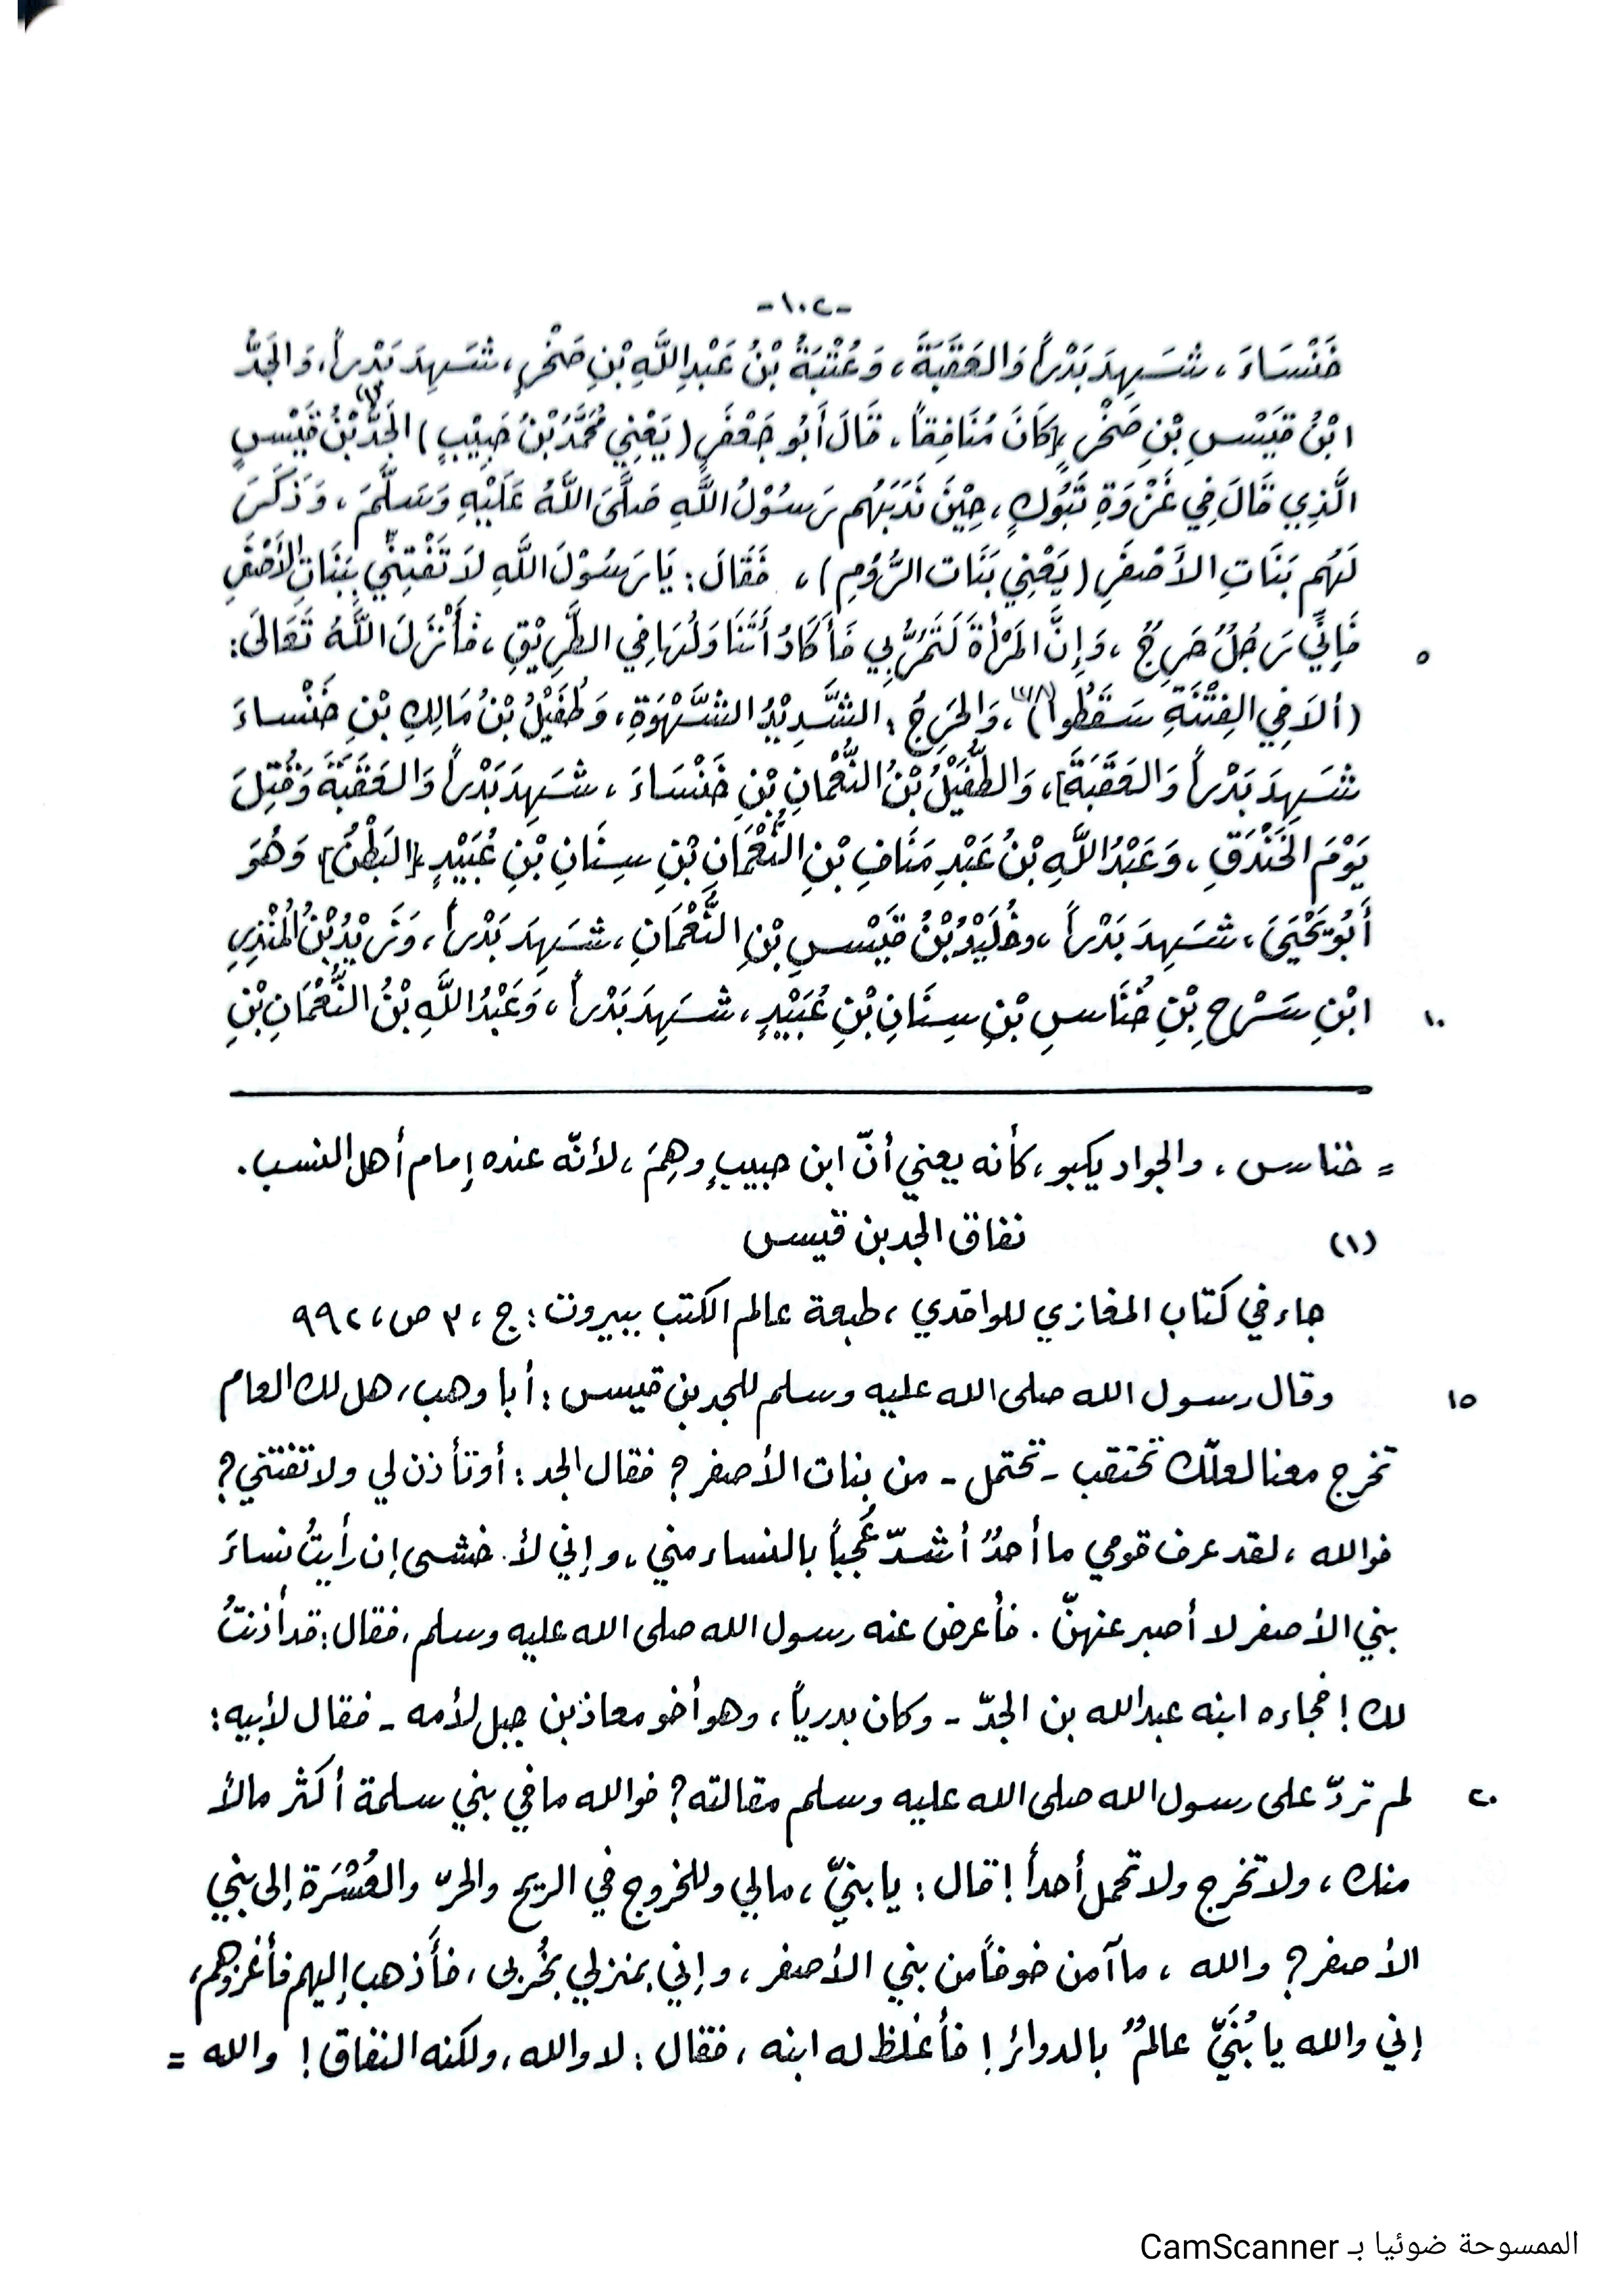 -١٠٢-
خَنْسَاءَ، شَهِدَ بَدْراً وَالعَقَبَةَ، وَعُتْبَةُ بْنُ عَبْدِ اللَّهِ بْنِ صَخْرٍ، شَهِدَ بَدْراً، وَالجَدُّ
ابْنُ قَيْسِ بْنِ صَخْرٍ [كَانَ مُنَافِقاً، قَالَ أَبُو جَعْفَرٍ (يَعْنِي مُحَمَّدُ بْنُ حَبِيْبٍ) الجَدُّ(١) بْنُ قَيْسٍ
الَّذِي قَالَ فِي غَزْوَةِ تَبُوْكٍ، حِيْنَ نَدَبَهُم رَسُوْلُ اللَّهِ صَلَّى اللَّهُ عَلَيْهِ وَسَلَّمَ، وَذَكَرَ
لَهُم بَنَاتِ الأَصْفَرِ (يَعْنِي بَنَات الرُّوْمِ)، فَقَالَ: يَا رَسُوْلَ اللَّهِ لَا تَفْتِنِّي بِبَنَاتِ الأَصْفَرِ
فَإِنِّي رَجُلٌ حَرِجٌ، وَإِنَّ المَرْأَةَ لَتَمُرُّ بِي فَأَكَادُ أَتَنَاوَلُهَا فِي الطَّرِيْقِ، فَأَنْزَلَ اللَّهُ تَعَالَى: ٥
(أَلَا فِي الفِتْنَةِ سَقَطُوا)، وَالحَرِجُ: الشَّدِيْدُ الشَّهْوَةِ، وَطُفَيْلُ بْنُ مَالِكِ بْنِ خَنْساءَ
شَهِدَ بَدْراً وَالعَقَبَةَ]، وَالطُّفَيْلُ بْنُ النُّعْمَانِ بْنِ خَنْسَاءَ، شَهِدَ بَدْراً وَالعَقَبَةَ وَقُتِلَ
يَوْمَ الخَنْدَقِ، وَعَبْدُ اللَّهِ بْنُ عَبْدِ مَنَافِ بْنِ النُّعْمَانِ بْنِ سِنَانِ بْنِ عُبَيْدٍ [البَطْنُ] وَهُوَ
أَبُو يَحْيَى، شَهِدَ بَدْراً، وخُلَيْدُ بْنُ قَيْسِ بْنِ النُّعْمَانِ، شَهِدَ بَدْراً، وَزَيْدُ بْنُ المُنْذِرِ
ابْنِ سَرْحِ بْنِ خُنَاسِ بْنِ سِنَانِ بْنِ عُبَيْدٍ، شَهِدَ بَدْراً، وَعَبْدُ اللَّهِ بْنُ النُّعْمَانِ بْنِ ١٠
= خناس، والجواد يكبو، كأنه يعني أنّ ابن حبيبٍ وهِمَ، لأنّه عنده إمام أهل النسب.
(١) نفاق الجد بن قيس
جاء في كتاب المغازي للواقدي، طبعة عالم الكتب ببيروت: ج، ٣ ص، ٩٩٢
وقال رسول الله صلى الله عليه وسلم للجد بن قيس: أبا وهب، هل لك العام ١٥
تخرج معنا لعلّك تحتقب - تحتمل - من بنات الأصفر؟ فقال الجد: أوتأذن لي ولا تفتني؟
فوالله، لقد عرف قومي ما أحدٌ أشدّ عُجْباً بالنساء مني، وإني لأ خشى إن رأيتُ نساءَ
بني الأصفر لا أصبر عنهنّ. فأعرض عنه رسول الله صلى الله عليه وسلم، فقال: قد أذنتُ
لك! فجاءه ابنه عبدالله بن الجدّ - وكان بدرياً، وهو أخو معاذ بن جبل لأمه - فقال لأبيه:
لم تردّ على رسول الله صلى الله عليه وسلم مقالته؟ فوالله ما في بني سلمة أكثر مالاً ٢٠
منك، ولا تخرج ولا تحمل أحداً! قال: يا بنيّ، مالي وللخروج في الريح والحرّ والعُسْرَة إلى بني
الأصفر؟ والله، ما آمن خوفاً من بني الأصفر، وإني بمنزلي بخُربى، فأَذهب إليهم فأغزوهم،
إني والله يا بُنَيّ عالمٌ بالدوائر! فأغلظ له ابنه، فقال: لا والله، ولكنه النفاق! والله =
الممسوحة ضوئيا بـ CamScanner